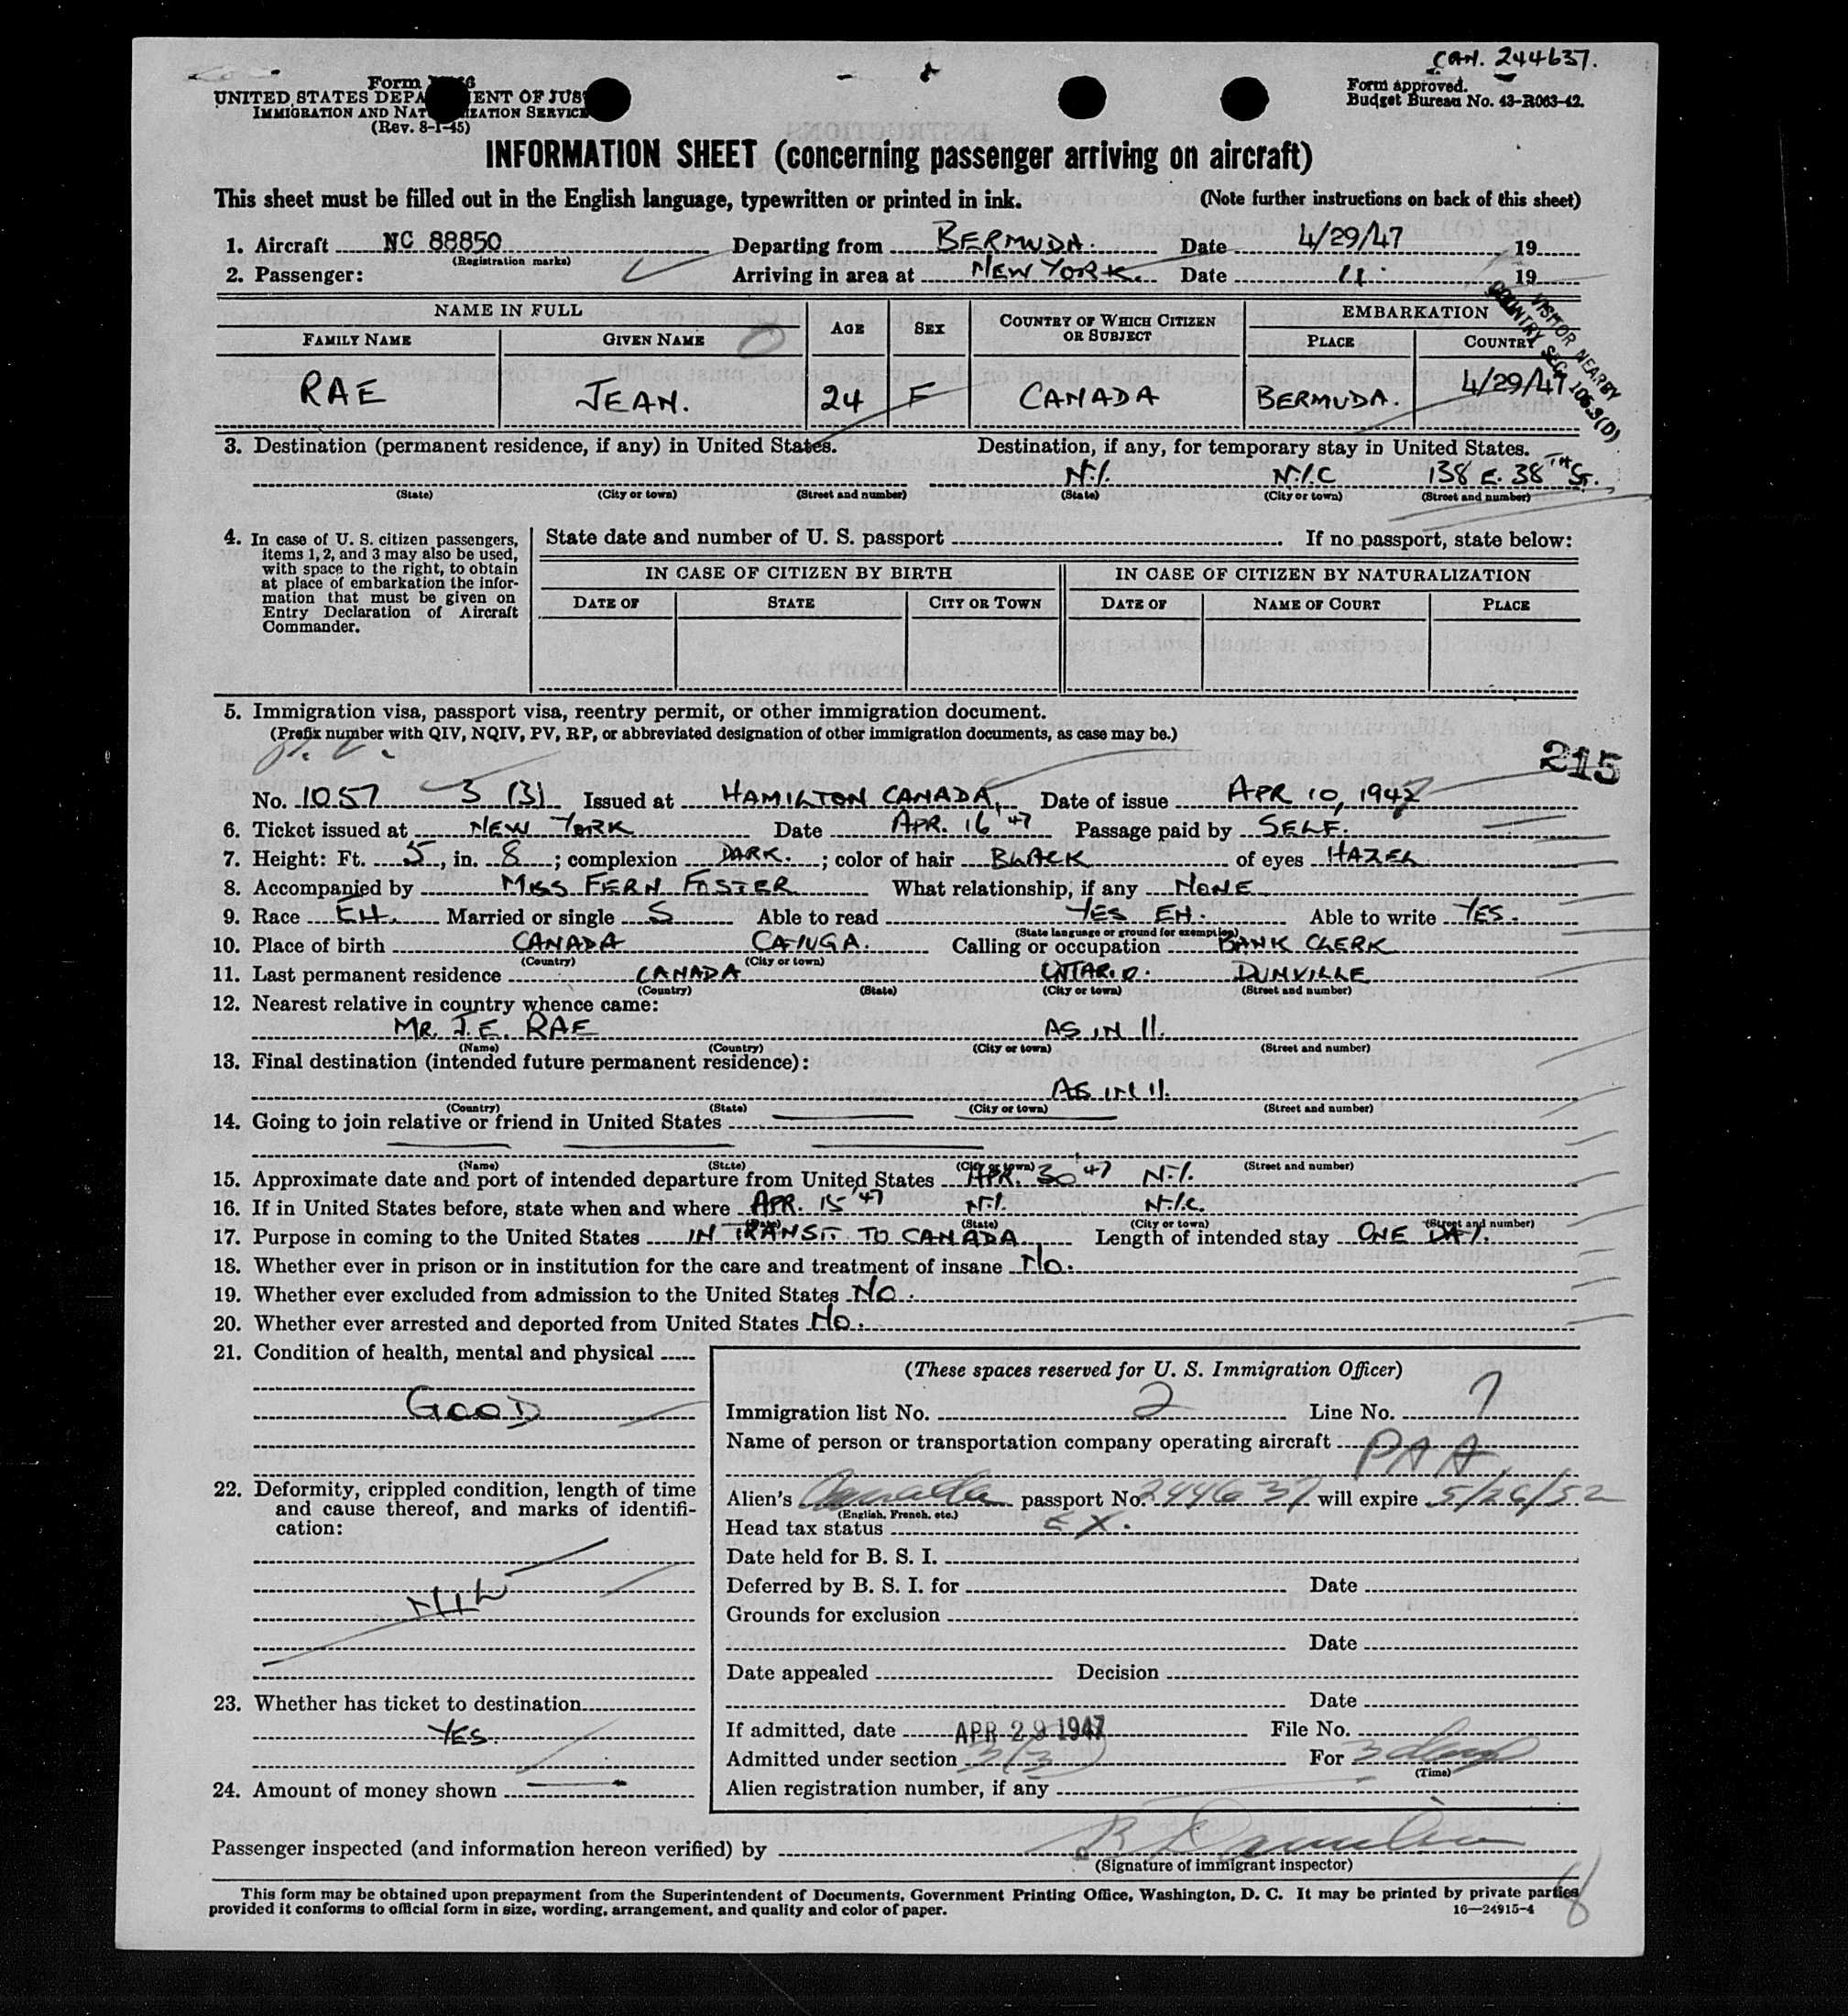 CAN. 244637.
Form
UNITED STATES DEPA ENT OF JUS
IMMIGRATION AND NAT IZATION SERVICE
(Rev. 8-1-45)
Form approved.
Budget Bureau No. 43-R063-42.
INFORMATION SHEET (concerning passenger arriving on aircraft)
This sheet must be filled out in the English language, typewritten or printed in ink. (Note further instructions on back of this sheet)
1. Aircraft NC 88850 Departing from BERMUDA. Date 4/29/47 19
(Registration marks)
2. Passenger: Arriving in area at NEW YORK. Date 19
VISITOR NEARBY
COUNTRY SEC. 106.3(D)
NAME IN FULL AGE SEX COUNTRY OF WHICH CITIZEN OR SUBJECT EMBARKATION
FAMILY NAME GIVEN NAME PLACE COUNTRY
RAE JEAN. 24 F CANADA BERMUDA. 4/29/47
3. Destination (permanent residence, if any) in United States. Destination, if any, for temporary stay in United States.
N.Y. N.Y.C 138 E. 38TH ST.
(State) (City or town) (Street and number) (State) (City or town) (Street and number)
4. In case of U. S. citizen passengers, items 1, 2, and 3 may also be used, with space to the right, to obtain at place of embarkation the information that must be given on Entry Declaration of Aircraft Commander.
State date and number of U. S. passport If no passport, state below:
IN CASE OF CITIZEN BY BIRTH IN CASE OF CITIZEN BY NATURALIZATION
DATE OF STATE CITY OR TOWN DATE OF NAME OF COURT PLACE
5. Immigration visa, passport visa, reentry permit, or other immigration document.
(Prefix number with QIV, NQIV, PV, RP, or abbreviated designation of other immigration documents, as case may be.)
215
No. 1057 3 (3) Issued at HAMILTON CANADA, Date of issue APR 10, 1947
6. Ticket issued at NEW YORK Date APR. 16 '47 Passage paid by SELF.
7. Height: Ft. 5, in. 8; complexion DARK.; color of hair BLACK of eyes HAZEL
8. Accompanied by MISS FERN FOSTER What relationship, if any NONE
9. Race EH. Married or single S Able to read YES EH. Able to write YES.
(State language or ground for exemption)
10. Place of birth CANADA CAYUGA. Calling or occupation BANK CLERK
(Country) (City or town)
11. Last permanent residence CANADA ONTARIO. DUNVILLE
(Country) (State) (City or town) (Street and number)
12. Nearest relative in country whence came:
MR. J. E. RAE AS IN 11.
(Name) (Country) (City or town) (Street and number)
13. Final destination (intended future permanent residence):
AS IN 11.
(Country) (State) (City or town) (Street and number)
14. Going to join relative or friend in United States
(Name) (State) (City or town) (Street and number)
15. Approximate date and port of intended departure from United States APR. 30 '47 N.Y.
16. If in United States before, state when and where APR. 15 '47 N.Y. N.Y.C.
(Date) (State) (City or town) (Street and number)
17. Purpose in coming to the United States IN TRANSIT TO CANADA Length of intended stay ONE DAY.
18. Whether ever in prison or in institution for the care and treatment of insane NO.
19. Whether ever excluded from admission to the United States NO.
20. Whether ever arrested and deported from United States NO.
21. Condition of health, mental and physical
GOOD
22. Deformity, crippled condition, length of time and cause thereof, and marks of identification:
NIL
23. Whether has ticket to destination
YES.
24. Amount of money shown
(These spaces reserved for U. S. Immigration Officer)
Immigration list No. 2 Line No. 7
Name of person or transportation company operating aircraft PAA
Alien's Canada passport No. 244637 will expire 5/26/52
(English, French, etc.)
Head tax status EX.
Date held for B. S. I.
Deferred by B. S. I. for Date
Grounds for exclusion
Date
Date appealed Decision
Date
If admitted, date APR 29 1947 File No.
Admitted under section 3(3) For 3 days
(Time)
Alien registration number, if any
Passenger inspected (and information hereon verified) by
(Signature of immigrant inspector)
This form may be obtained upon prepayment from the Superintendent of Documents, Government Printing Office, Washington, D. C. It may be printed by private parties
provided it conforms to official form in size, wording, arrangement, and quality and color of paper. 16—24915-4